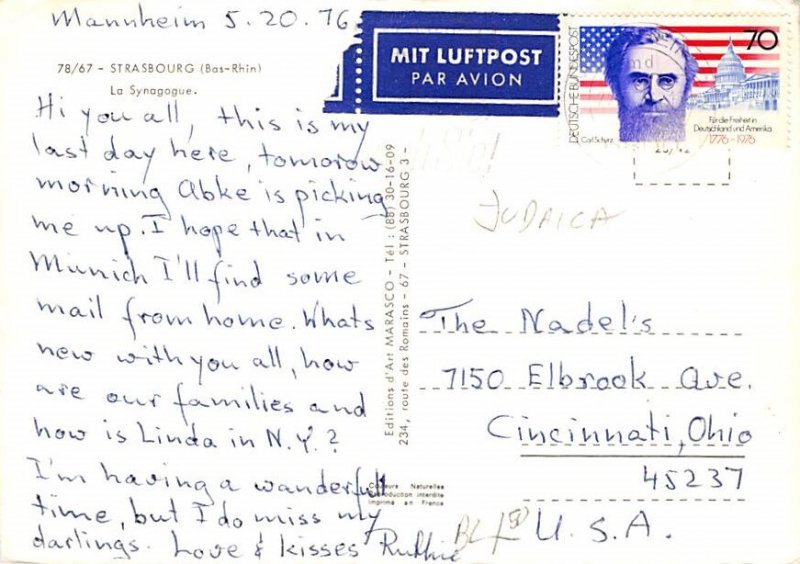 Mannheim 5.20.76
MIT LUFTPOST
PAR AVION
DEUTSCHE BUNDESPOST
70
Carl Schurz
Für die Freiheit in
Deutschland und Amerika
1776-1976
78/67 - STRASBOURG (Bas-Rhin)
La Synagogue.
Hi you all, this is my
last day here, tomorow
morning Abke is picking
me up. I hope that in
Munich I'll find some
mail from home. Whats
new with you all, how
are our families and
how is Linda in N.Y.?
I'm having a wanderfull
time, but I do miss my
darlings. Love & kisses Ruthie
Editions d'Art MARASCO - Tél : (88) 30-16-09
234, route des Romains - 67 - STRASBOURG 3 -
Couleurs Naturelles
Reproduction interdite
Imprimé en France
JUDAICA
The Nadel's
7150 Elbrook Ave.
Cincinnati, Ohio
45237
U.S.A.